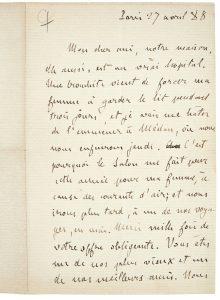 Paris 27 avril 88
Mon cher ami, notre maison,
ici aussi, est un vrai hôpital.
Une bronchite vient de forcer ma
femme à garder le lit pendant
trois jours, et je vais me hâter
de l'emmener à Médan, où nous
nous enfuirons jeudi. C'est
pourquoi le Salon me fait peur
cette année pour ma femme, à
cause des courants d'air; et nous
irons plus tard, à un de nos voya-
ges, en mai. Merci mille fois de
votre offre obligeante. Vous êtes
un de nos plus vieux et un
de nos meilleurs amis. Nous